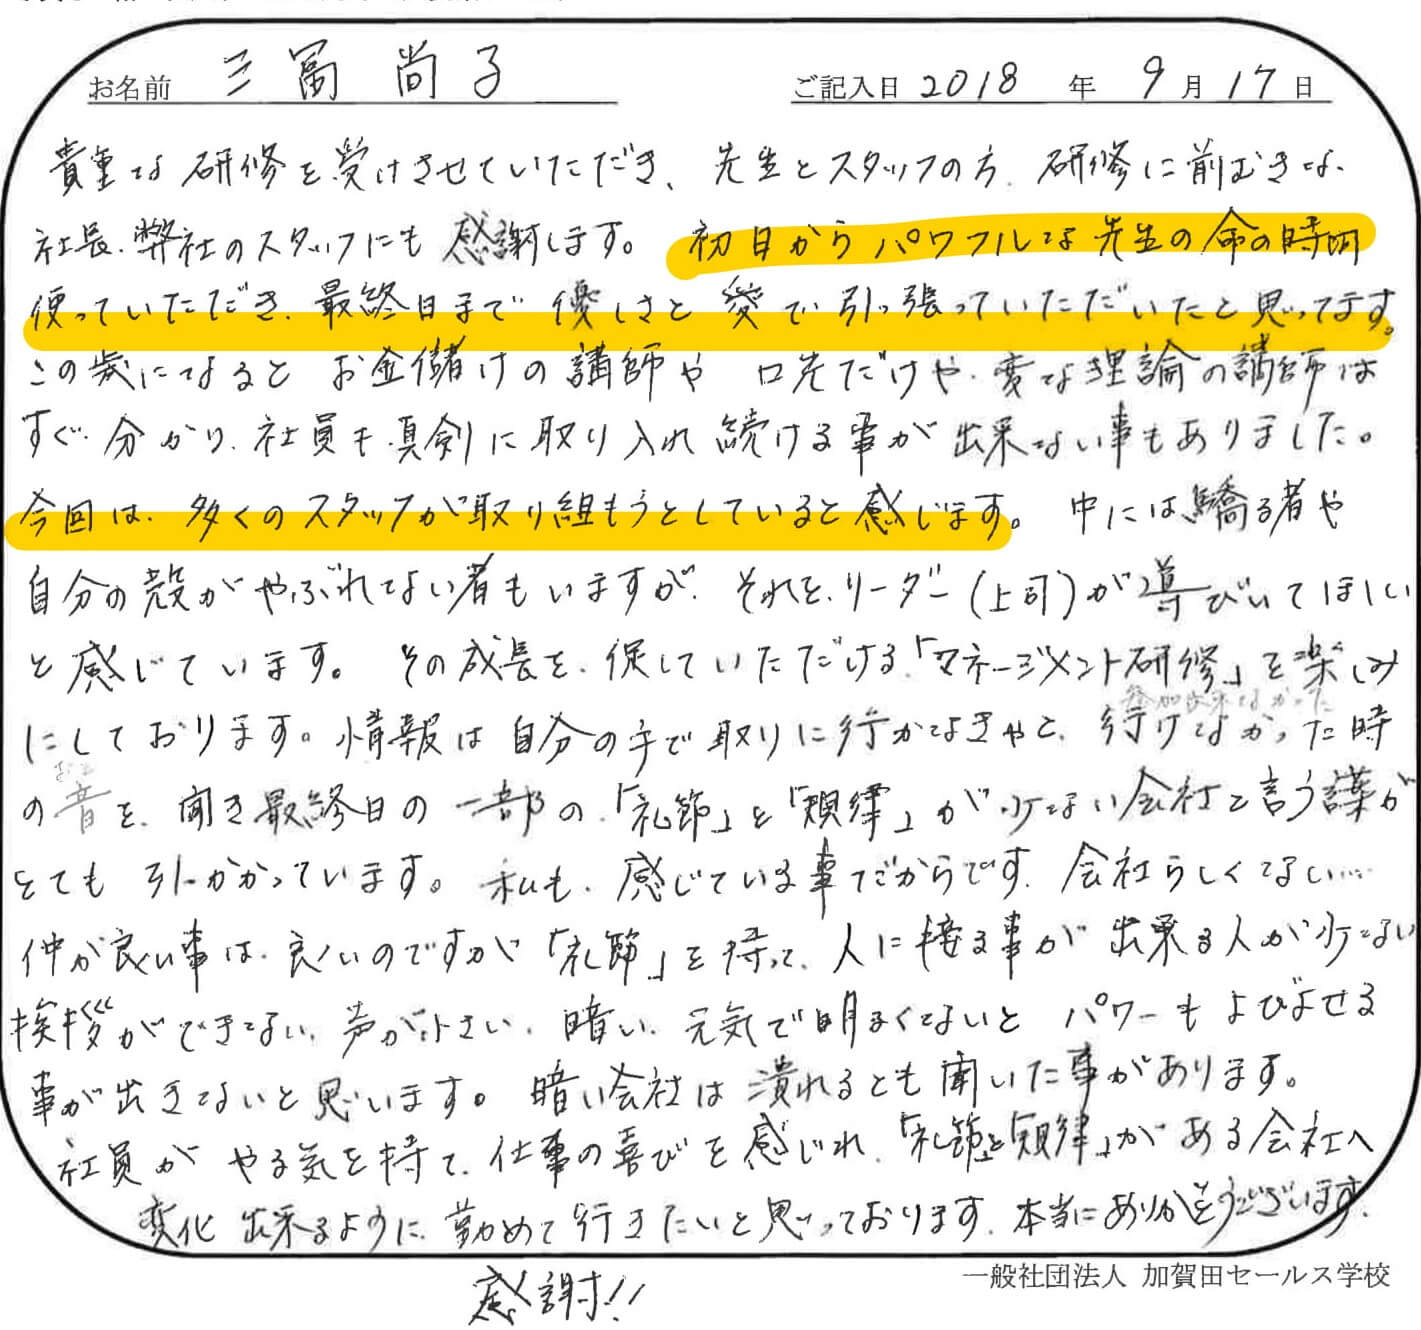 お名前 三冨 尚子 ご記入日 2018 年 9月17日
貴重な研修を受けさせていただき、先生とスタッフの方、研修に前むきな、
社長、弊社のスタッフにも感謝します。初日からパワフルな先生の命の時間
使っていただき、最終日まで優しさと愛で引っ張っていただいたと思ってます。
この歳になるとお金儲けの講師や口先だけや、変な理論の講師は
すぐ分かり、社員も真剣に取り入れ続ける事が出来ない事もありました。
今回は、多くのスタッフが取り組もうとしていると感じます。中には驕る者や
自分の殻がやぶれてない者もいますが、それを、リーダー(上司)が導びいてほしい
と感じています。その成長を、促していただける、「マネージメント研修」を楽しみ
にしております。情報は自分の手で取りに行かなきゃと、行けなかった時
参加出来なかった
の音を、聞き最終日の一部の、「礼節」と「規律」が少ない会社と言う言葉が
おと
とても引っかかっています。私も、感じている事だからです、会社らしくない…
仲が良い事は、良いのですが「礼節」を持って、人に接る事が出来る人が少ない
挨拶ができない、声が小さい、暗い、元気で明るくないとパワーもよびよせる
事が出きないと思います。暗い会社は潰れるとも聞いた事があります。
社員がやる気を持て、仕事の喜びを感じれ、「礼節」と「規律」がある会社へ
変化出来るように、勤めて行きたいと思っております、本当にありがとうございます。
感謝!!
一般社団法人 加賀田セールス学校